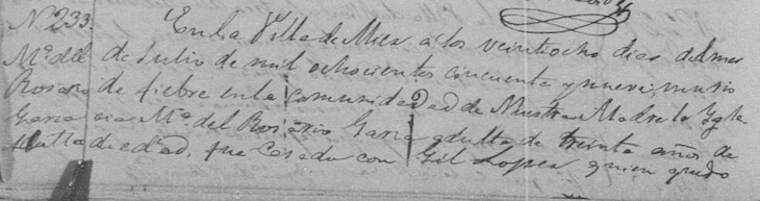 N 233. En la Villa de Mier á los veintiocho dias del mes
Mª del de Julio de mil ochocientos cincuenta y nueve, murio
Rosario de fiebre en la Comunidad de Nuestra Madre la Igle
Garza cia Mª del Rosario Garza adulta de treinta años de
adulta de edad, fue casada con Gil Lopez quien quedo